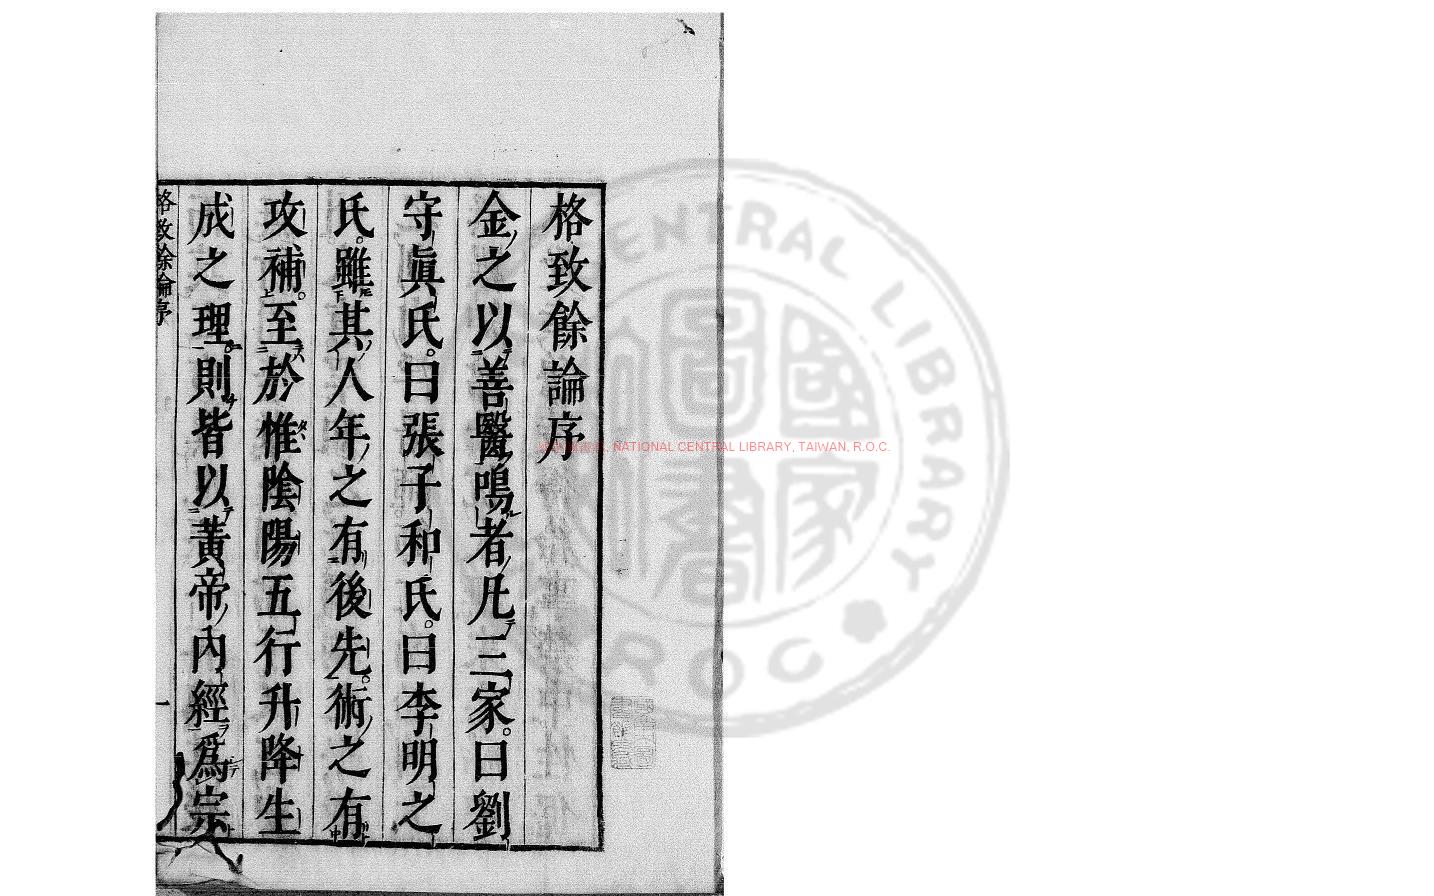 格致餘論序
金之以善醫鳴者凡三家。曰劉
守眞氏。曰張子和氏。曰李明之
氏。雖其人年之有後先。術之有
攻補。至於惟陰陽五行升降生
成之理。則皆以黃帝內經爲宗
格致餘論序
一
NATIONAL CENTRAL LIBRARY, TAIWAN, R.O.C.
CENTRAL LIBRARY
R.O.C